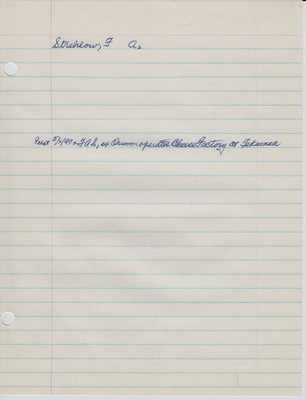 Strehlow, F A.
as Owner-operator Cheese Factory at Tekamah